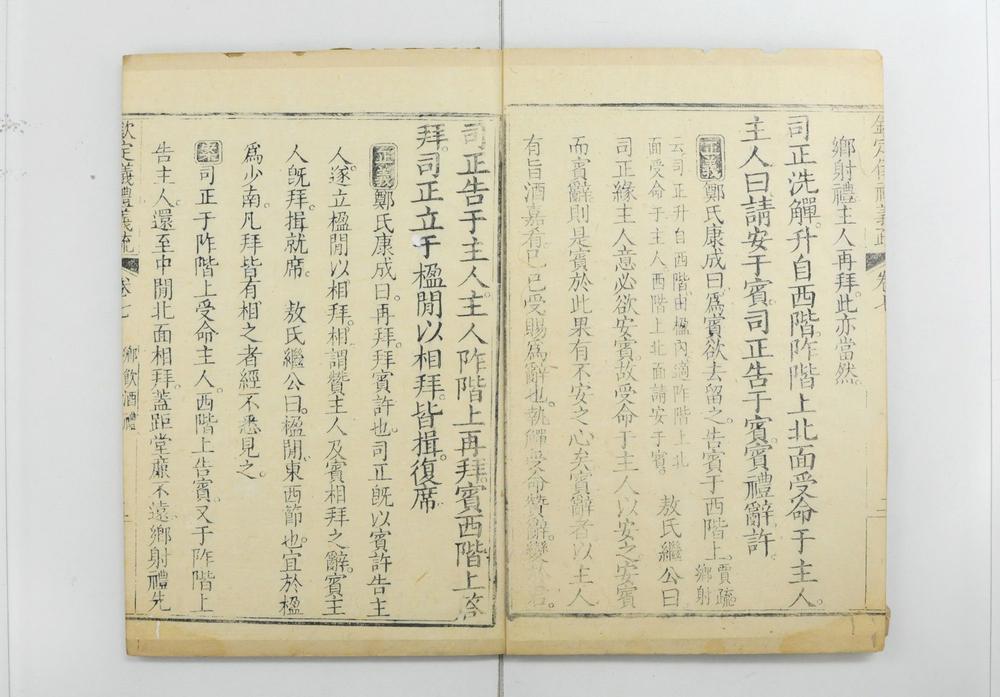 鄉射禮主人再拜此亦當然。
司正洗觶升自西階阼階上北面受命于主人。
主人曰請安于賓司正告于賓賓禮辭許。
正義鄭氏康成曰爲賓欲去留之告賓于西階上。賈疏鄉射
云司正升自西階由楹內適阼階上北
面受命于主人西階上北面請安于賓。敖氏繼公曰
司正緣主人意必欲安賓故受命于主人以安之安賓
而賓辭則是賓於此果有不安之心矣賓辭者以主人
有旨酒嘉肴已已受賜爲辭也。執觶受命贊辭變于君。
卷七
司正告于主人主人阼階上再拜賓西階上答
拜。司正立于楹閒以相拜。皆揖復席
正義鄭氏康成曰。再拜。拜賓許也。司正旣以賓許告主
人。遂立楹閒以相拜。相謂贊主人及賓相拜之辭。賓主
人旣拜揖就席。敖氏繼公曰。楹閒東西節也。宜於楹
爲少南。凡拜皆有相之者經不悉見之。
案司正于阼階上受命主人。西階上告賓。又于阼階上
告主人。還至中閒北面相拜。蓋距堂廉不遠鄉射禮先
欽定儀禮義疏 卷七 鄉飲酒禮